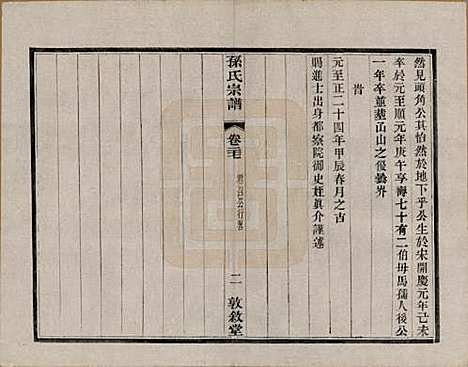 然見頭角公其怡然於地下乎公生於宋開慶元年己未
卒於元至順元年庚午享壽七十有二伯母馬孺人後公
一年卒葬基山之優曇界
元至正二十四年甲辰春月之吉
賜進士出身都察院御史姪真介謹述
孫氏宗譜
卷三
行畧
二
敦敘堂